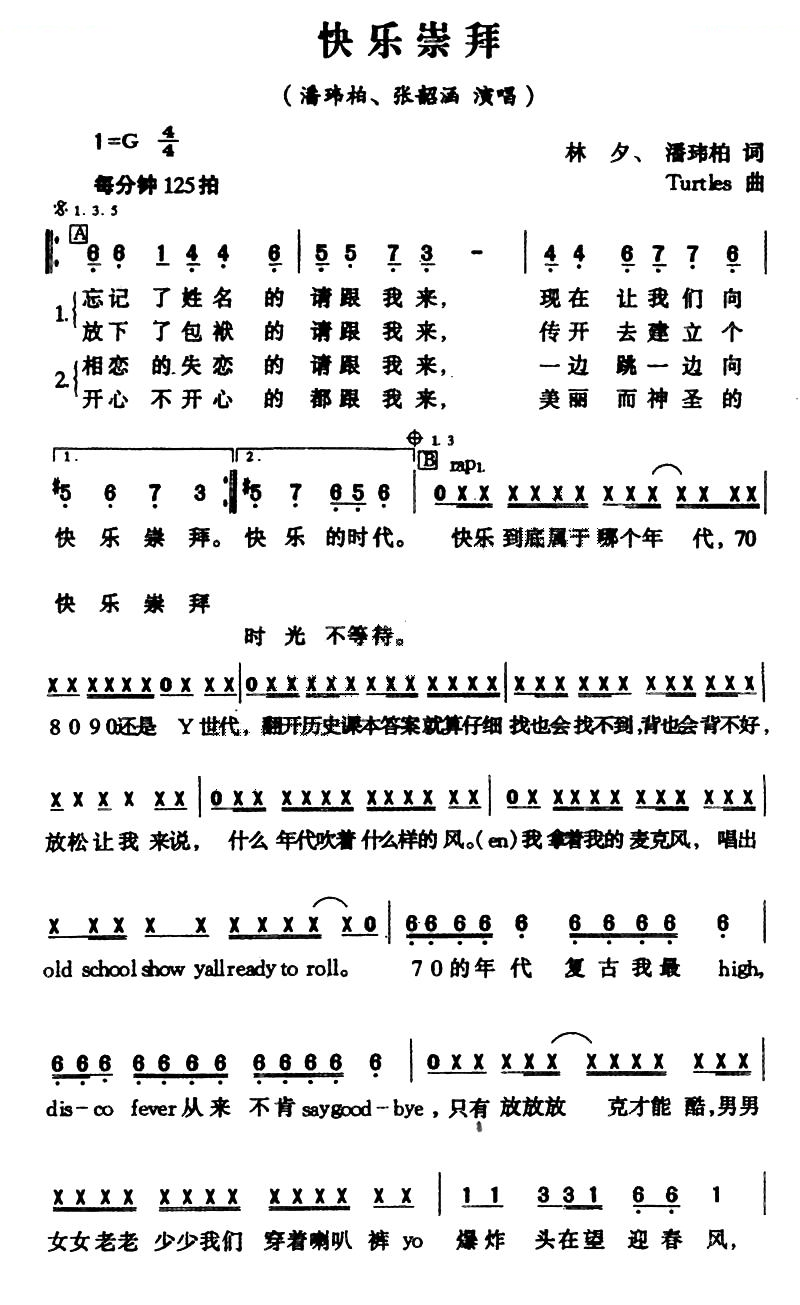 快乐崇拜
(潘玮柏、张韶涵 演唱)
1=G 4/4
林 夕、 潘玮柏 词
每分钟 125拍
Turtles 曲
1. 3. 5
A
6 6 1 4 4 6 | 5 5 7 3 - | 4 4 6 7 7 6 |
1. 忘记 了姓名 的请跟我来, 现在 让我们向
放下 了包袱 的请跟我来, 传开 去建立个
2. 相恋 的.失恋 的请跟我来, 一边 跳一边向
开心 不开心 的都跟我来, 美丽 而神圣的
1. 2. 1. 3
B rap1.
#5 6 7 3 #5 7 6 5 6 | 0 X X X X X X X X X X X X X |
快 乐 崇 拜。 快 乐 的时代。 快乐 到底属于 哪个年 代, 70
快 乐 崇 拜
时 光 不等待。
X X X X X X 0 X X X | 0 X X X X X X X X X X X X X X | X X X X X X X X X X X X X X |
8 0 9 0还是 Y 世代, 翻开历史课本答案就算仔细 找也会找不到,背也会背不好,
X X X X X X | 0 X X X X X X X X X X X X | 0 X X X X X X X X X X X X |
放松让我 来说, 什么 年代吹着 什么样的 风。(en)我 拿着我的 麦克风, 唱出
X X X X X X X X X X 0 | 6 6 6 6 6 6 6 6 6 6 |
old school show yall ready to roll。 7 0的年 代 复 古 我 最 high,
6 6 6 6 6 6 6 6 6 6 6 6 | 0 X X X X X X X X X X X X |
dis-co fever从来 不肯 say good-bye, 只有 放放放 克才能 酷,男男
X X X X X X X X X X X X X X | 1 1 3 3 1 6 6 1 |
女女老老 少少我们 穿着喇叭 裤 yo 爆炸 头在望 迎 春 风,